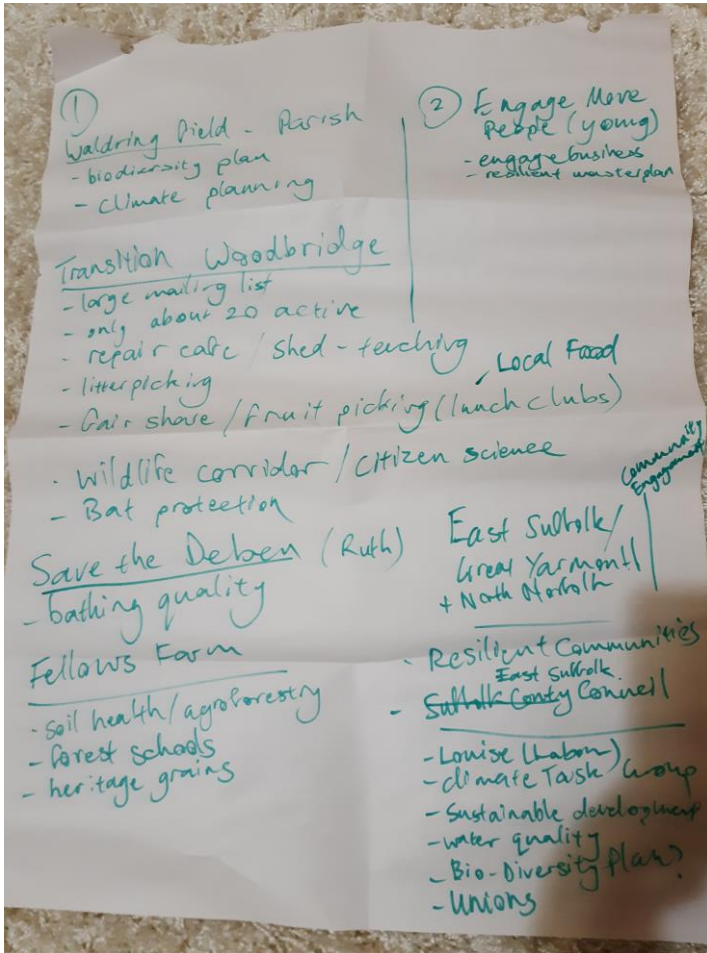 ①
Waldring Field - Parish
- biodiversity plan
- climate planning
Transition Woodbridge
- large mailing list
- only about 20 active
- repair cafe / Shed - teaching
- litter picking
Local Food
- Fair share / Fruit picking (lunch clubs)
- wildlife corridor / citizen science
- Bat protection
Save the Deben (Ruth)
- bathing quality
Fellows Farm
- soil health / agroforestry
- forest schools
- heritage grains
② Engage More
People (young)
- engage business
- resilient masterplan
Community
Engagement
East Suffolk /
Great Yarmouth
+ North Norfolk
- Resilient Communities
East Suffolk
- Suffolk Conty Council
- Louise (Labour)
- climate Task Group
- Sustainable development
- water quality
- Bio-Diversity Plan?
- Unions